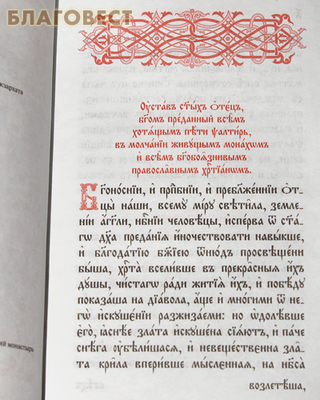 БЛАГОВЕСТ
зсхарката
Оуста́въ ст҃ы́хъ ѻ҆те́цъ,
бг҃омъ пре́данный всѣ̑мъ
хотѧ́щымъ пѣ́ти ѱалти́рь,
въ молча́нїи живꙋ́щымъ мона́хѡмъ
и҆ всѣ̑мъ бг҃обоѧ́знивымъ
правосла́внымъ хрⷭ҇тїа́нѡмъ.
Бг҃оно́снїи, и҆ прпⷣбнїи, и҆ пребл҃же́ннїи ѻ҆т-
цы̀ на́ши, всемꙋ̀ мі́рꙋ свѣти̑ла, земле́-
нїи а҆́гг҃ли, нбⷭ҇нїи человѣ́цы, и҆спе́рва ѿ ста́-
гѡ дх҃а преда́нїѧ и҆́ночествовати навы́кше,
и҆ благода́тїю бж҃їею ѿню́дъ просвѣще́ни
бы́ша, хрⷭ҇та̀ всели́вше въ прекра̑сныѧ и҆́хъ
дꙋ́шы, чи́стагѡ ра́ди житїѧ̀ и҆́хъ, и҆ побѣ́дꙋ
показа́ша на дїа́вола, а҆́ще и҆ мно́гими ѿ не-
гѡ̀ и҆скꙋше́нїи разжиза́еми: но ᲂу҆долѣ́вше
є҆го̀, ꙗ҆снѣ́е зла́та и҆скꙋше́на сїѧ́ютъ, и҆ па́че
снѣ́га ᲂу҆бѣли́шасѧ, и҆ невеще́ственна зла-
та̀ крила̀ впе́ривше мы́сленнаѧ, на нб҃са̀
возлетѣ́ша,
ей монастырь